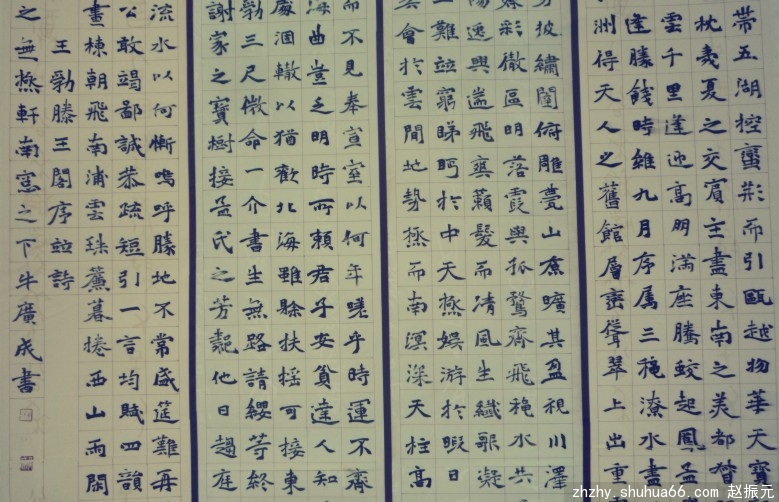 帶五湖控蠻荊而引甌越物華天寶
枕夷夏之交賓主盡東南之美都督
雲千里逢迎高明滿座騰蛟起鳳孟
逢勝餞時維九月序屬三穐潦水盡
洲得天人之舊館層巒聳翠上出重
披繡闥俯雕甍山原曠其盈視川澤
彩徹區明落霞與孤鶩齊飛穐水共
逸興遄飛爽籟發而清風生纖歌凝
二難並窮睇眄於中天極娛游於暇日
會於雲間地勢極而南溟深天柱高
而不見奉宣室以何年嗟乎時運不齊
海曲豈乏明時所賴君子安貧達人知
處涸轍以猶歡北海雖賒扶搖可接東
勃三尺微命一介書生無路請纓等終
謝家之寶樹接孟氏之芳鄰他日趨庭
流水以何慚嗚呼勝地不常盛筵難再
公敢竭鄙誠恭疏短引一言均賦四韻
畫棟朝飛南浦雲珠簾暮捲西山雨閑
王勃滕王閣序並詩
之無極軒南窓之下牛廣成書
zhzhy.shuhua66.com 赵振元